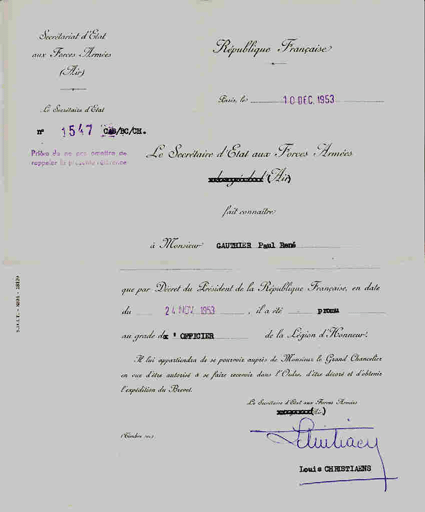 Secrétariat d'Etat
aux Forces Armées
(Air)
République Française
Paris, le 10 DEC. 1953
Le Secrétaire d'Etat
n° 1547 CAB/BC/CH.
Prière de ne pas omettre de
rappeler la présente référence
Le Secrétaire d'Etat aux Forces Armées
(Air)
fait connaître
à Monsieur GAUTHIER Paul René
que par Décret du Président de la République Française, en date
du 24 NOV 1953, il a été promu
au grade d' OFFICIER de la Légion d'Honneur.
Il lui appartiendra de se pourvoir auprès de Monsieur le Grand Chancelier
en vue d'être autorisé à se faire recevoir dans l'Ordre, d'être décoré et d'obtenir
l'expédition du Brevet.
Le Secrétaire d'Etat aux Forces Armées
(Air)
Louis CHRISTIAENS